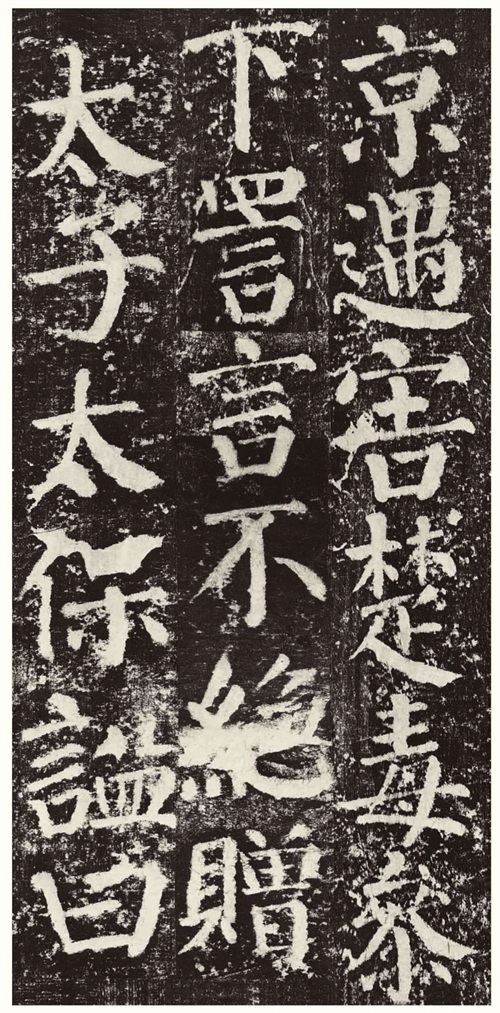 京遇害楚毒參
下詈言不絶贈
太子太保謚曰